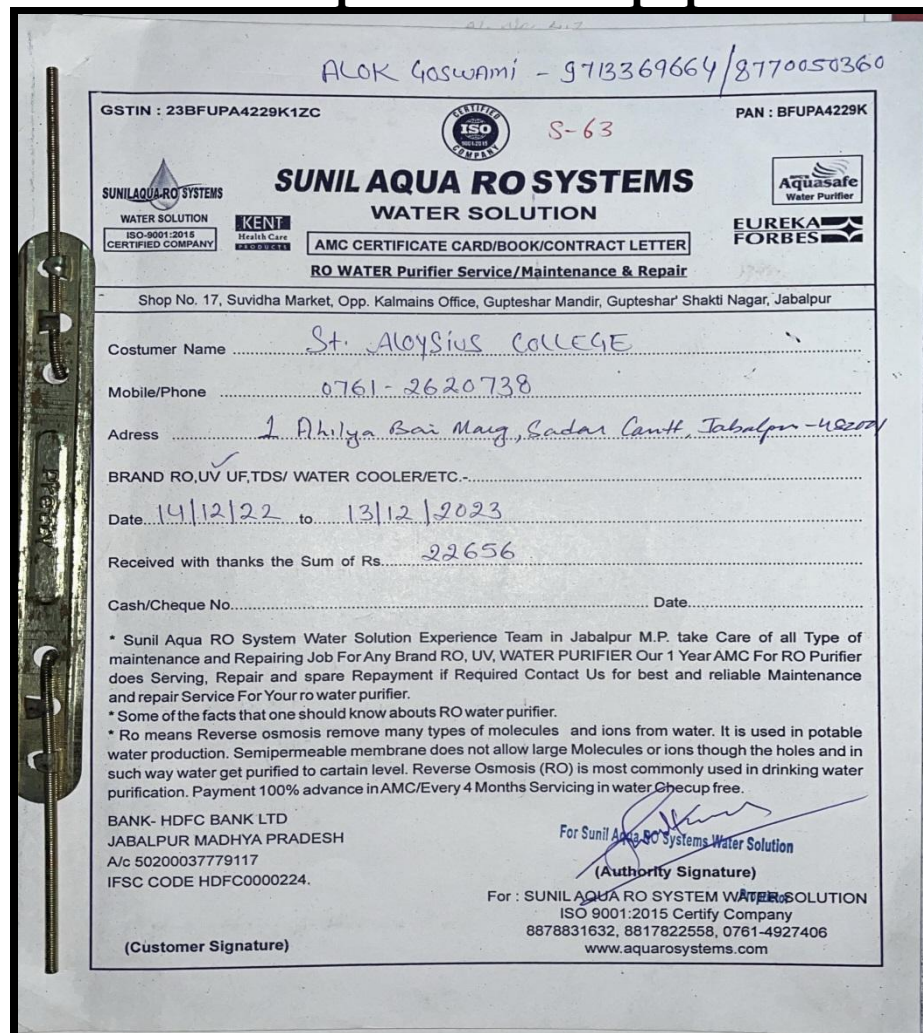 ALOK GOSWAMI - 9713369664/8770050360
GSTIN : 23BFUPA4229K1ZC
CERTIFIED
ISO
9001:2015
COMPANY
S-63
PAN : BFUPA4229K
SUNIL AQUA RO SYSTEMS
WATER SOLUTION
ISO-9001:2015
CERTIFIED COMPANY
KENT
Health Care
PRODUCTS
SUNIL AQUA RO SYSTEMS
WATER SOLUTION
AMC CERTIFICATE CARD/BOOK/CONTRACT LETTER
RO WATER Purifier Service/Maintenance & Repair
Aquasafe
Water Purifier
EUREKA
FORBES
Shop No. 17, Suvidha Market, Opp. Kalmains Office, Gupteshar Mandir, Gupteshar' Shakti Nagar, Jabalpur
Costumer Name St. Aloysius COLLEGE
Mobile/Phone 0761-2620738
Adress 1 Ahilya Bai Marg, Sadar Cantt, Jabalpur - 482001
BRAND RO,UV UF,TDS/ WATER COOLER/ETC.-
Date 14/12/22 to 13/12/2023
Received with thanks the Sum of Rs. 22656
Cash/Cheque No. Date
* Sunil Aqua RO System Water Solution Experience Team in Jabalpur M.P. take Care of all Type of
maintenance and Repairing Job For Any Brand RO, UV, WATER PURIFIER Our 1 Year AMC For RO Purifier
does Serving, Repair and spare Repayment if Required Contact Us for best and reliable Maintenance
and repair Service For Your ro water purifier.
* Some of the facts that one should know abouts RO water purifier.
* Ro means Reverse osmosis remove many types of molecules and ions from water. It is used in potable
water production. Semipermeable membrane does not allow large Molecules or ions though the holes and in
such way water get purified to cartain level. Reverse Osmosis (RO) is most commonly used in drinking water
purification. Payment 100% advance in AMC/Every 4 Months Servicing in water Checup free.
BANK- HDFC BANK LTD
JABALPUR MADHYA PRADESH
A/c 50200037779117
IFSC CODE HDFC0000224.
(Customer Signature)
For Sunil Aqua RO Systems Water Solution
(Authority Signature)
For : SUNIL AQUA RO SYSTEM WATER SOLUTION
ISO 9001:2015 Certify Company
8878831632, 8817822558, 0761-4927406
www.aquarosystems.com